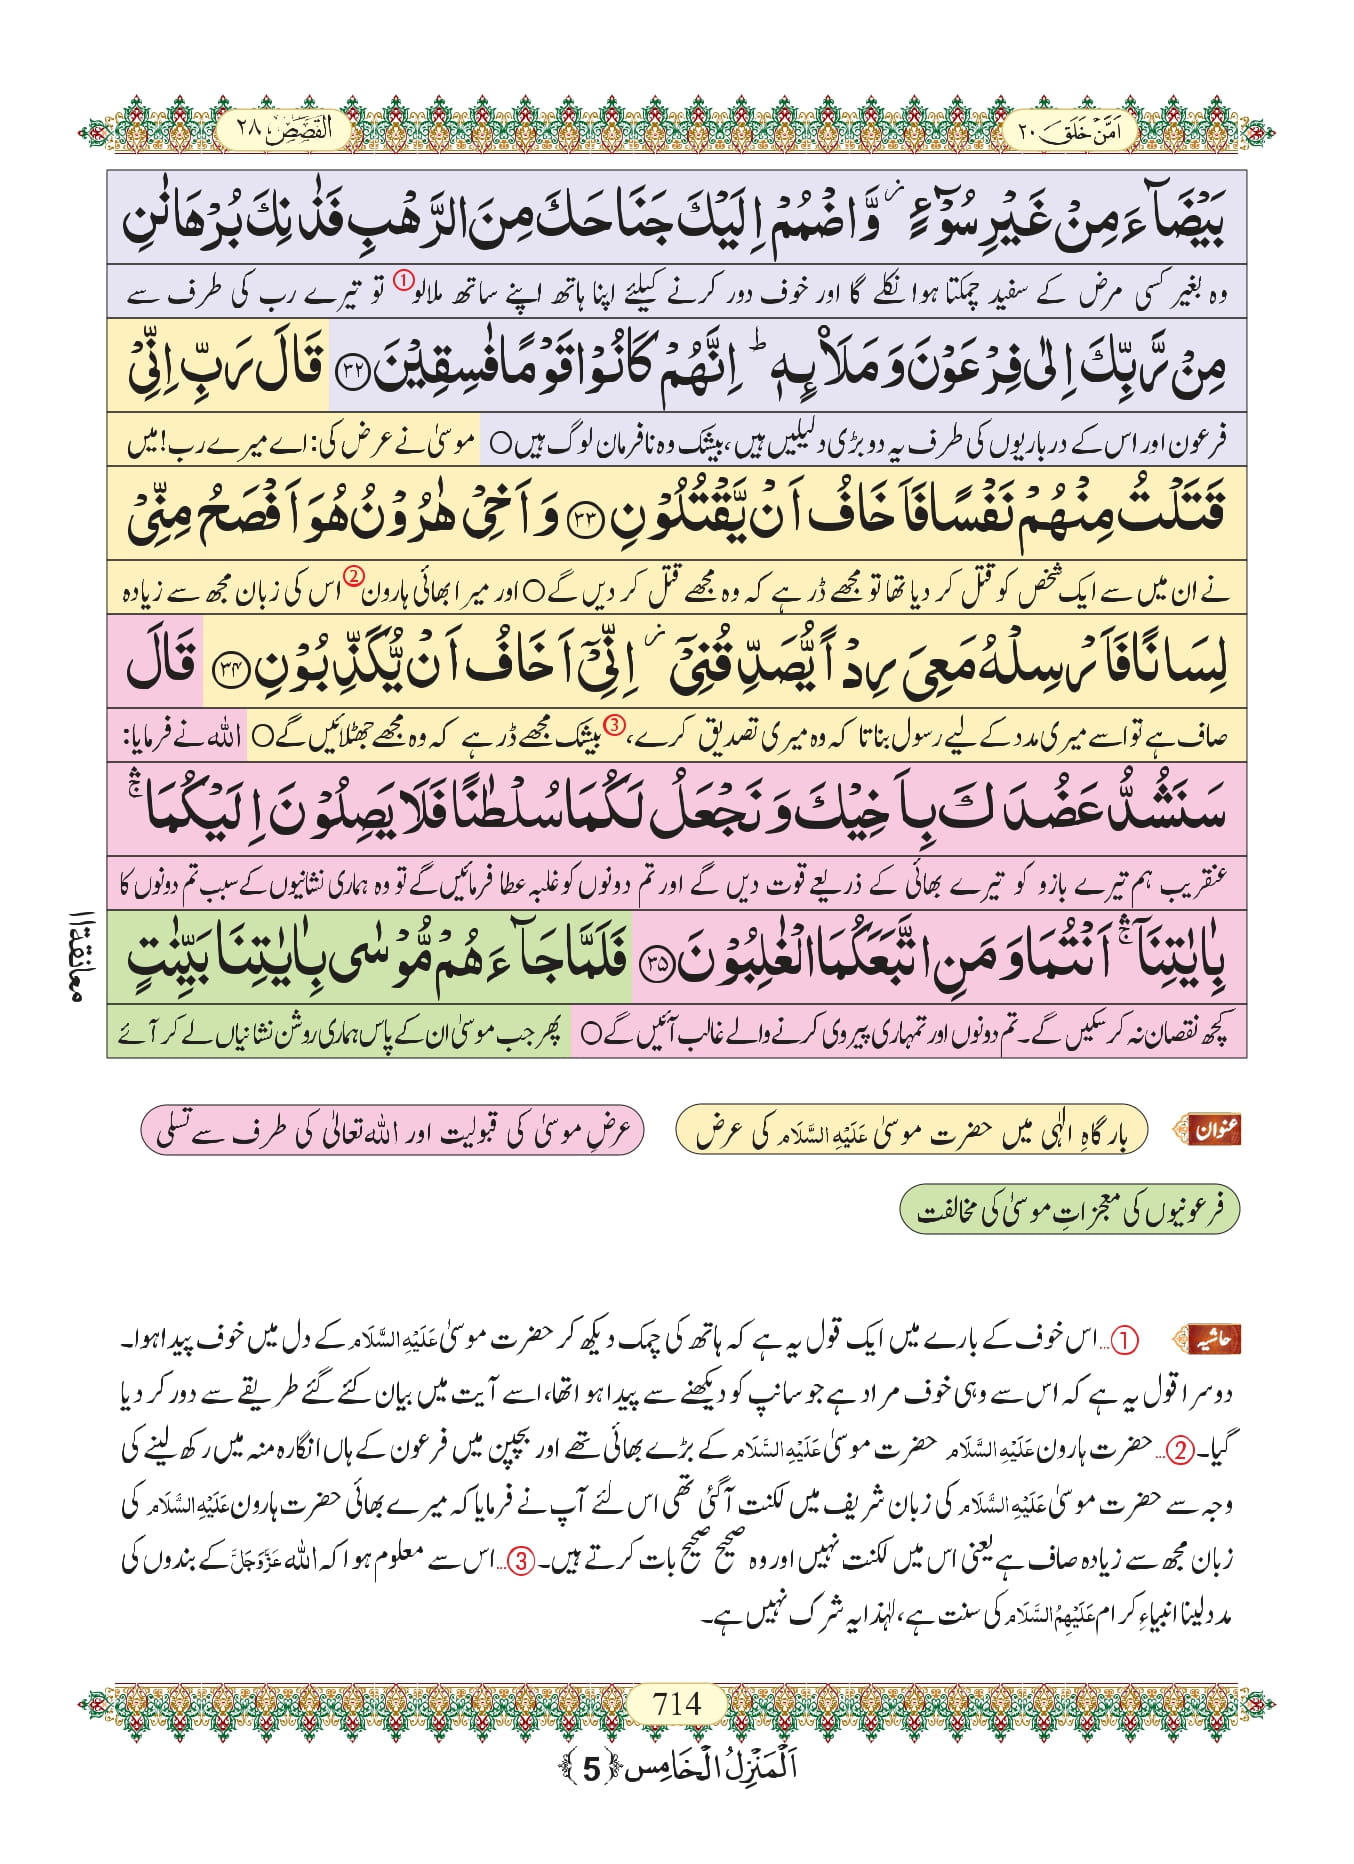 اَمَّنْ خَلَقَ ۲۰
القَصَص ۲۸
بَیْضَآءَ مِنْ غَیْرِ سُوْٓءٍ٘ وَّ اضْمُمْ اِلَیْكَ جَنَاحَكَ مِنَ الرَّهْبِ فَذٰنِكَ بُرْهَانٰنِ
وہ بغیر کسی مرض کے سفید چمکتا ہوا نکلے گا اور خوف دور کرنے کیلئے اپنا ہاتھ اپنے ساتھ ملالو① تو تیرے رب کی طرف سے
مِنْ رَّبِّكَ اِلٰى فِرْعَوْنَ وَ مَلَاۡىٕهٖؕ اِنَّهُمْ كَانُوْا قَوْمًا فٰسِقِیْنَ ﴿۳۲﴾ قَالَ رَبِّ اِنِّیْ
فرعون اور اس کے درباریوں کی طرف یہ دو بڑی دلیلیں ہیں، بیشک وہ نافرمان لوگ ہیں○ موسیٰ نے عرض کی: اے میرے رب! میں
قَتَلْتُ مِنْهُمْ نَفْسًا فَاَخَافُ اَنْ یَّقْتُلُوْنِ ﴿۳۳﴾ وَ اَخِیْ هٰرُوْنُ هُوَ اَفْصَحُ مِنِّیْ
نے ان میں سے ایک شخص کو قتل کر دیا تھا تو مجھے ڈر ہے کہ وہ مجھے قتل کر دیں گے○ اور میرا بھائی ہارون② اس کی زبان مجھ سے زیادہ
لِسَانًا فَاَرْسِلْهُ مَعِیَ رِدْاً یُّصَدِّقُنِیْۤ٘ اِنِّیْۤ اَخَافُ اَنْ یُّكَذِّبُوْنِ ﴿۳۴﴾ قَالَ
صاف ہے تو اسے میری مدد کے لیے رسول بناتا کہ وہ میری تصدیق کرے،③ بیشک مجھے ڈر ہے کہ وہ مجھے جھٹلائیں گے○ اللہ نے فرمایا:
سَنَشُدُّ عَضُدَكَ بِاَخِیْكَ وَ نَجْعَلُ لَكُمَا سُلْطٰنًا فَلَا یَصِلُوْنَ اِلَیْكُمَاۚۛ
عنقریب ہم تیرے بازو کو تیرے بھائی کے ذریعے قوت دیں گے اور تم دونوں کو غلبہ عطا فرمائیں گے تو وہ ہماری نشانیوں کے سبب تم دونوں کا
بِاٰیٰتِنَاۤۚۛ اَنْتُمَا وَ مَنِ اتَّبَعَكُمَا الْغٰلِبُوْنَ ﴿۳۵﴾ فَلَمَّا جَآءَهُمْ مُّوْسٰى بِاٰیٰتِنَا بَیِّنٰتٍ
معانقة ۱۱
کچھ نقصان نہ کرسکیں گے۔ تم دونوں اور تمہاری پیروی کرنے والے غالب آئیں گے○ پھر جب موسیٰ ان کے پاس ہماری روشن نشانیاں لے کر آئے
عنوان بارگاہِ الٰہی میں حضرت موسیٰ عَلَیْهِ السَّلَام کی عرض عرضِ موسیٰ کی قبولیت اور اللہ تعالیٰ کی طرف سے تسلی
فرعونیوں کی معجزاتِ موسیٰ کی مخالفت
حاشیہ ①...اس خوف کے بارے میں ایک قول یہ ہے کہ ہاتھ کی چمک دیکھ کر حضرت موسیٰ عَلَیْهِ السَّلَام کے دل میں خوف پیدا ہوا۔
دوسرا قول یہ ہے کہ اس سے وہی خوف مراد ہے جو سانپ کو دیکھنے سے پیدا ہوا تھا، اسے آیت میں بیان کئے گئے طریقے سے دور کر دیا
گیا۔②...حضرت ہارون عَلَیْهِ السَّلَام حضرت موسیٰ عَلَیْهِ السَّلَام کے بڑے بھائی تھے اور بچپن میں فرعون کے ہاں انگارہ منہ میں رکھ لینے کی
وجہ سے حضرت موسیٰ عَلَیْهِ السَّلَام کی زبان شریف میں لکنت آگئی تھی اس لئے آپ نے فرمایا کہ میرے بھائی حضرت ہارون عَلَیْهِ السَّلَام کی
زبان مجھ سے زیادہ صاف ہے یعنی اس میں لکنت نہیں اور وہ صحیح صحیح بات کرتے ہیں۔③...اس سے معلوم ہوا کہ اللہ عَزَّوَجَلَّ کے بندوں کی
مدد لینا انبیاءِ کرام عَلَیْهِمُ السَّلَام کی سنت ہے، لہٰذا یہ شرک نہیں ہے۔
714
اَلْمَنْزِلُ الْخَامِس ﴿5﴾